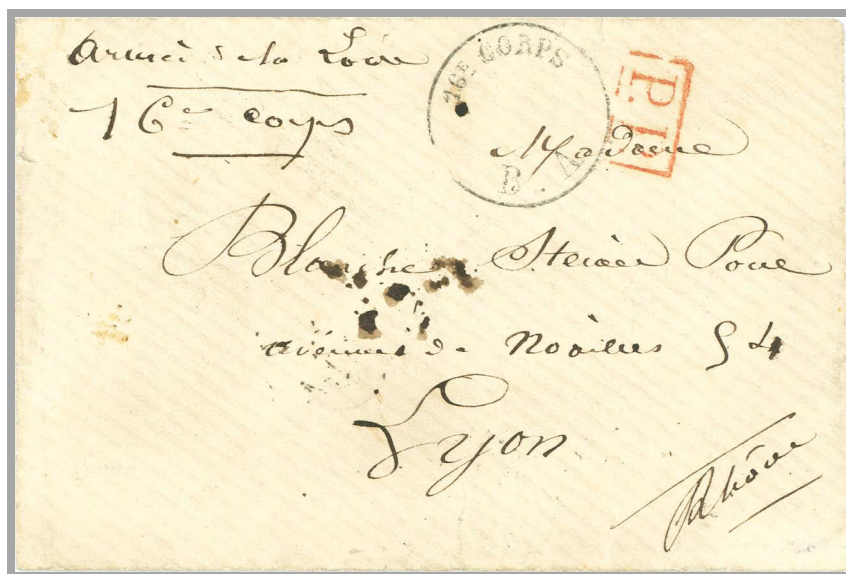 Armée de la Loire
16e corps
16E CORPS
B. A
P. P.
Madame
Blanche Steiner Pons
avenue de Noailles 54
Lyon
Rhône